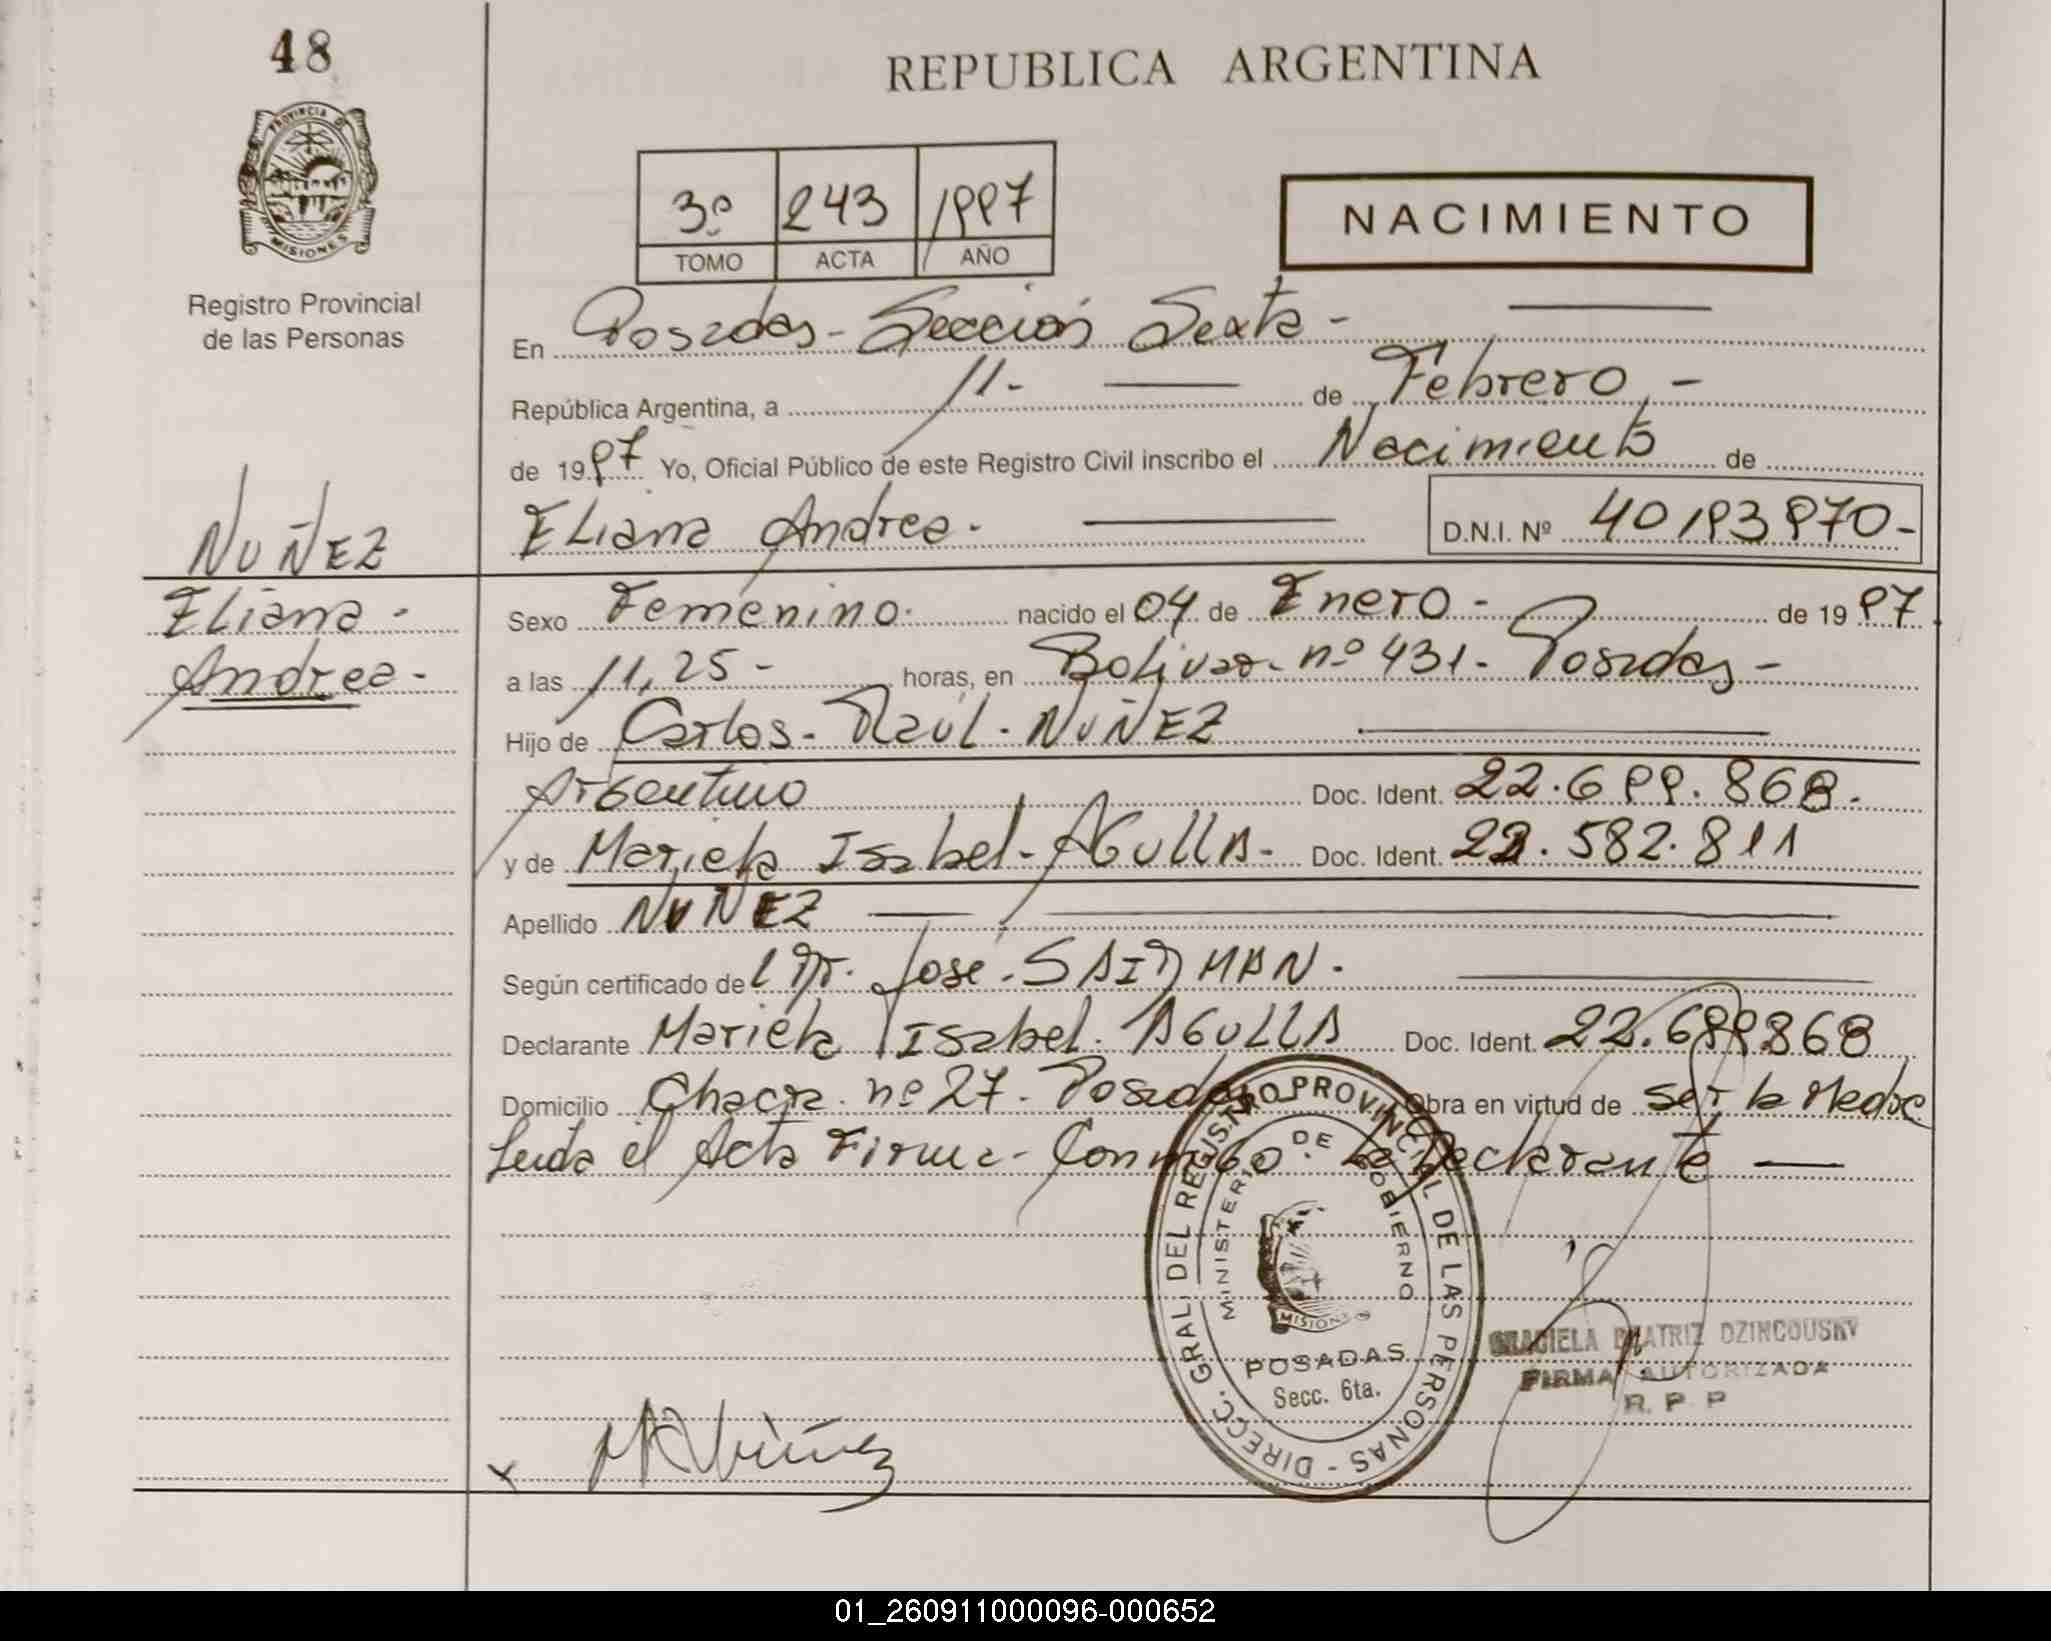 48
REPUBLICA ARGENTINA
PROVINCIA D
MISIONES
Registro Provincial
de las Personas
3º 243 1997
TOMO ACTA AÑO
NACIMIENTO
En Posadas - Sección Sexta -
República Argentina, a 11 - de Febrero -
de 1997 Yo, Oficial Público de este Registro Civil inscribo el Nacimiento de
Eliana Andrea - D.N.I. Nº 40193970 -
NUÑEZ
Eliana -
Andrea -
Sexo Femenino. nacido el 04 de Enero - de 1997
a las 11,25 - horas, en Bolivar - nº 431 - Posadas -
Hijo de Carlos - Raúl - NUÑEZ
Argentino Doc. Ident. 22.699.868.
y de Mariela Isabel - AGULLA - Doc. Ident. 22.582.811
Apellido NUÑEZ
Según certificado del Dr. José - SAIDMAN.
Declarante Mariela Isabel. AGULLA Doc. Ident. 22.699.868
Domicilio Chacra nº 27. Posadas Obra en virtud de ser la Madre
Leida el Acta Firma - Conmigo. La Declarante
DIRECC. GRAL. DEL REGISTRO PROVINCIAL DE LAS PERSONAS -
MINISTERIO DE GOBIERNO
MISIONES
POSADAS
Secc. 6ta.
GRACIELA BEATRIZ DZINCOUSKY
FIRMA AUTORIZADA
R. P. P
x
01_260911000096-000652